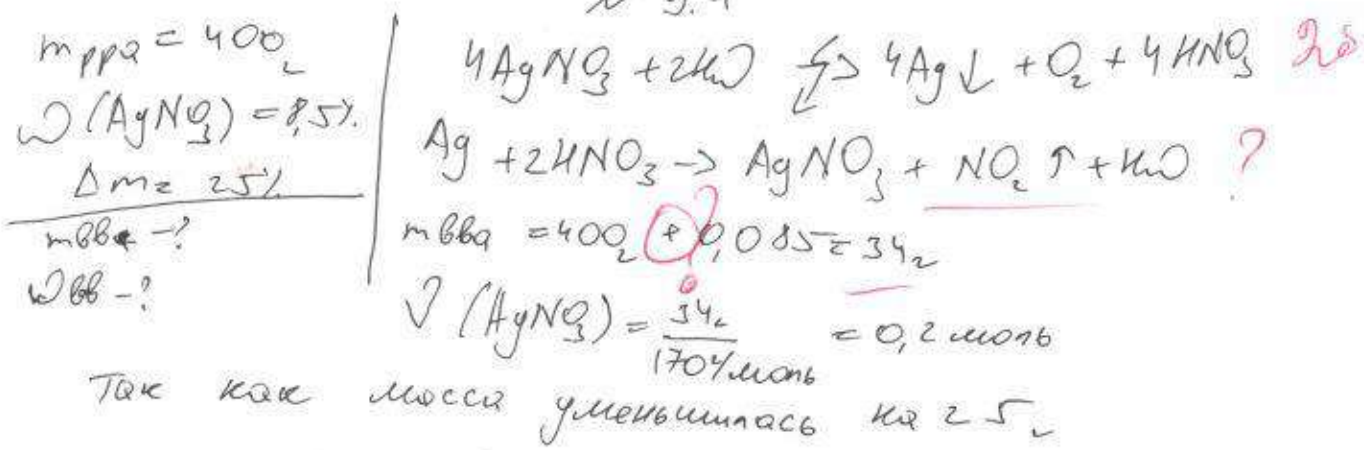 m рра = 400г
ω (AgNO3) = 8,5%.
Δm = 25%
m вва -?
ω вв -?
4AgNO3 + 2H2O ⚡> 4Ag↓ + O2 + 4HNO3 2б
Ag + 2HNO3 -> AgNO3 + NO2 ↑ + H2O ?
m вва = 400г + 0,085 = 34г ?
ν (AgNO3) = 34г / 170г/моль = 0,2 моль
Так как масса уменьшилась на 25г